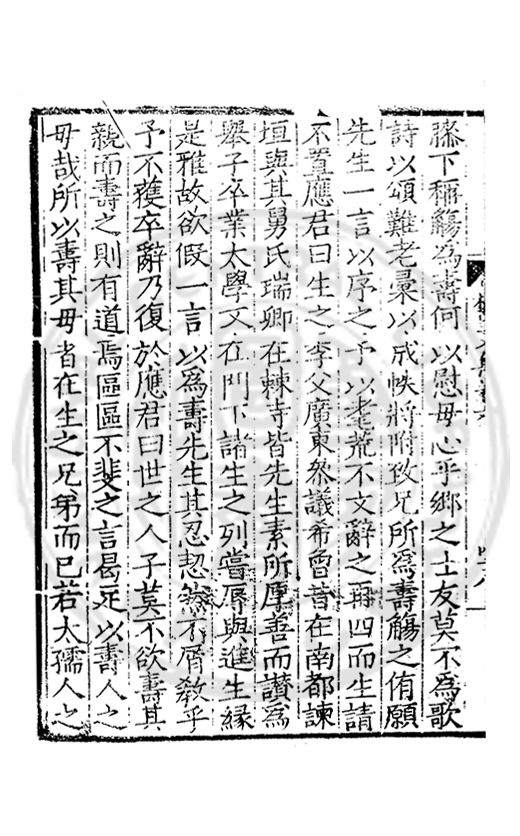 膝下稱觴為壽何以慰母心乎鄉之士友莫不為歌
詩以頌難老彚以成帙將附致兄所為壽觴之侑願
先生一言以序之予以耄荒不文辭之再四而生請
不置應君曰生之季父廣東叅議希曾昔在南都諫
垣與其舅氏瑞卿在棘寺皆先生素所厚善而讃為
舉子卒業太學又在門下諸生之列嘗辱與進生緣
是雅故欲假一言以為壽先生其忍恝然不屑敎乎
予不獲卒辭乃復於應君曰世之人子莫不欲壽其
親而壽之則有道焉區區不斐之言曷足以壽人之
母哉所以壽其母者在生之兄弟而已若太孺人之